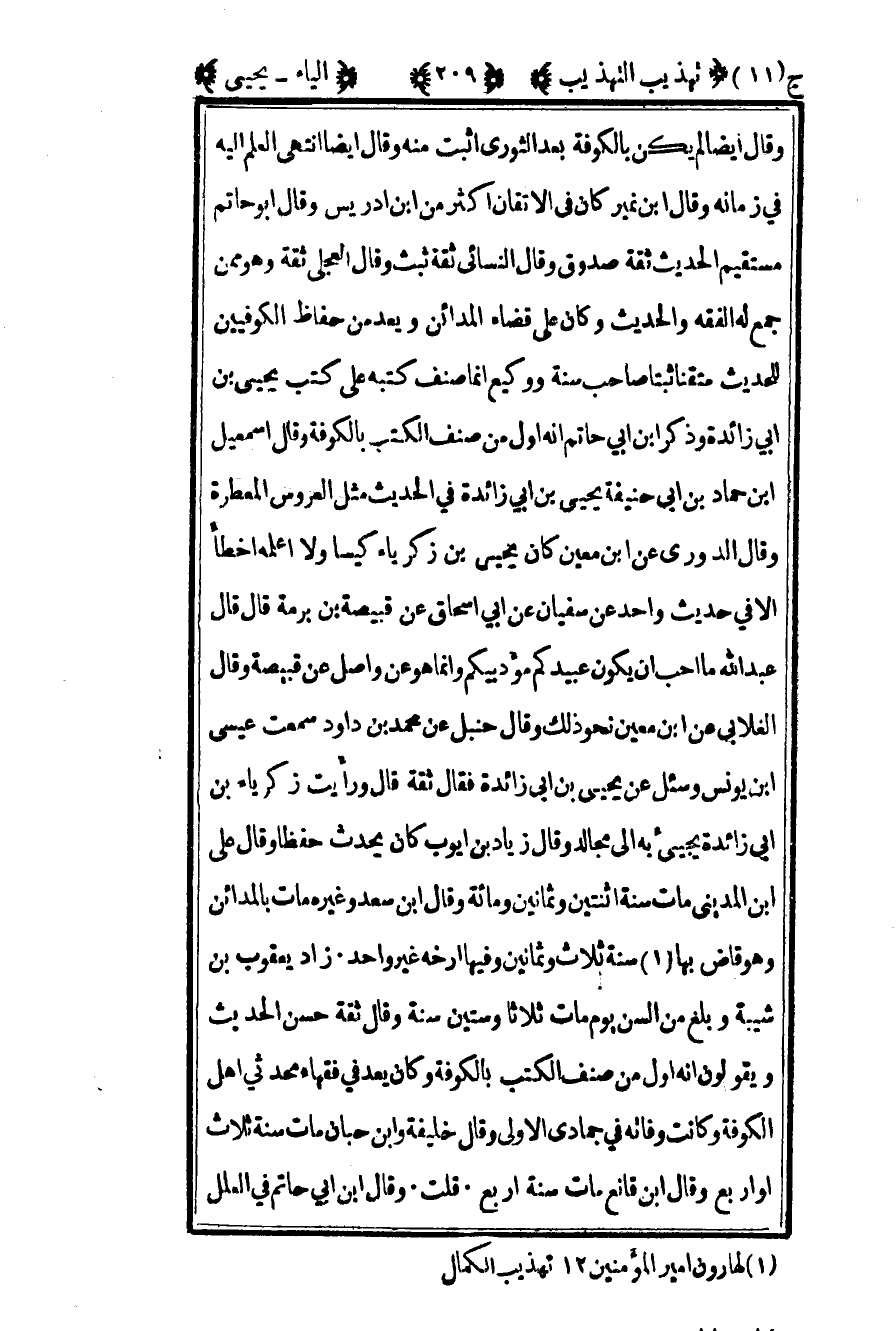 ج (١١) ﴿ تهذيب التهذيب ﴾ ﴿ ٢٠٩ ﴾ ﴿ الياء ـ يحيى ﴾
وقال ايضا لم يكن بالكوفة بعد الثورى اثبت منه وقال ايضا انتهى العلم اليه
في زمانه وقال ابن نمير كان فى الاتقان اكثر من ابن ادريس وقال ابو حاتم
مستقيم الحديث ثقة صدوق وقال النسائى ثقة ثبت وقال العجلى ثقة وهو ممن
جمع له الفقه والحديث وكان على قضاء المدائن ويعد من حفاظ الكوفيين
للحديث متقنا ثبتا صاحب سنة ووكيع انما صنف كتبه على كتب يحيى بن
ابي زائدة وذكر ابن ابي حاتم انه اول من صنف الكتب بالكوفة وقال اسمعيل
ابن حماد بن ابي حنيفة يحيى بن ابي زائدة في الحديث مثل العروس المعطرة
وقال الدورى عن ابن معين كان يحيى بن زكرياء كيسا ولا اعلمه اخطأ
الا في حديث واحد عن سفيان عن ابي اسحاق عن قبيصة بن برمة قال قال
عبد الله ما احب ان يكون عبيدكم مؤدبيكم وانما هو عن واصل عن قبيصة وقال
الغلابي عن ابن معين نحو ذلك وقال حنبل عن محمد بن داود سمعت عيسى
ابن يونس وسئل عن يحيى بن ابي زائدة فقال ثقة قال ورأيت زكرياء بن
ابي زائدة يجيىٔ به الى مجالد وقال زياد بن ايوب كان يحدث حفظا وقال على
ابن المدينى مات سنة اثنتين وثمانين ومائة وقال ابن سعد وغيره مات بالمدائن
وهو قاض بها (١) سنة ثلاث وثمانين وفيها ارخه غير واحد ٠ زاد يعقوب بن
شيبة وبلغ من السن يوم مات ثلاثا وستين سنة وقال ثقة حسن الحديث
ويقولون انه اول من صنف الكتب بالكوفة وكان يعد في فقهاء محدثي اهل
الكوفة وكانت وفاته في جمادى الاولى وقال خليفة وابن حبان مات سنة ثلاث
او اربع وقال ابن قانع مات سنة اربع ٠ قلت ٠ وقال ابن ابي حاتم في العلل
(١) لهارون امير المؤمنين ١٢ تهذيب الكمال